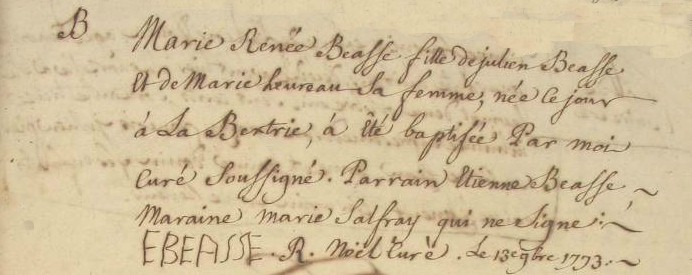 B Marie Renée Beasse fille de julien Beasse
Et de Marie heureau Sa femme, née Ce jour
á La Bertrie, á été baptisée Par moi
Curé Soussigné. Parrain Etienne Beasse ~
Maraine marie Salfray qui ne Signe. ~
EBEASSE. R. Noël Curé. Le 13e 9bre 1773. ~